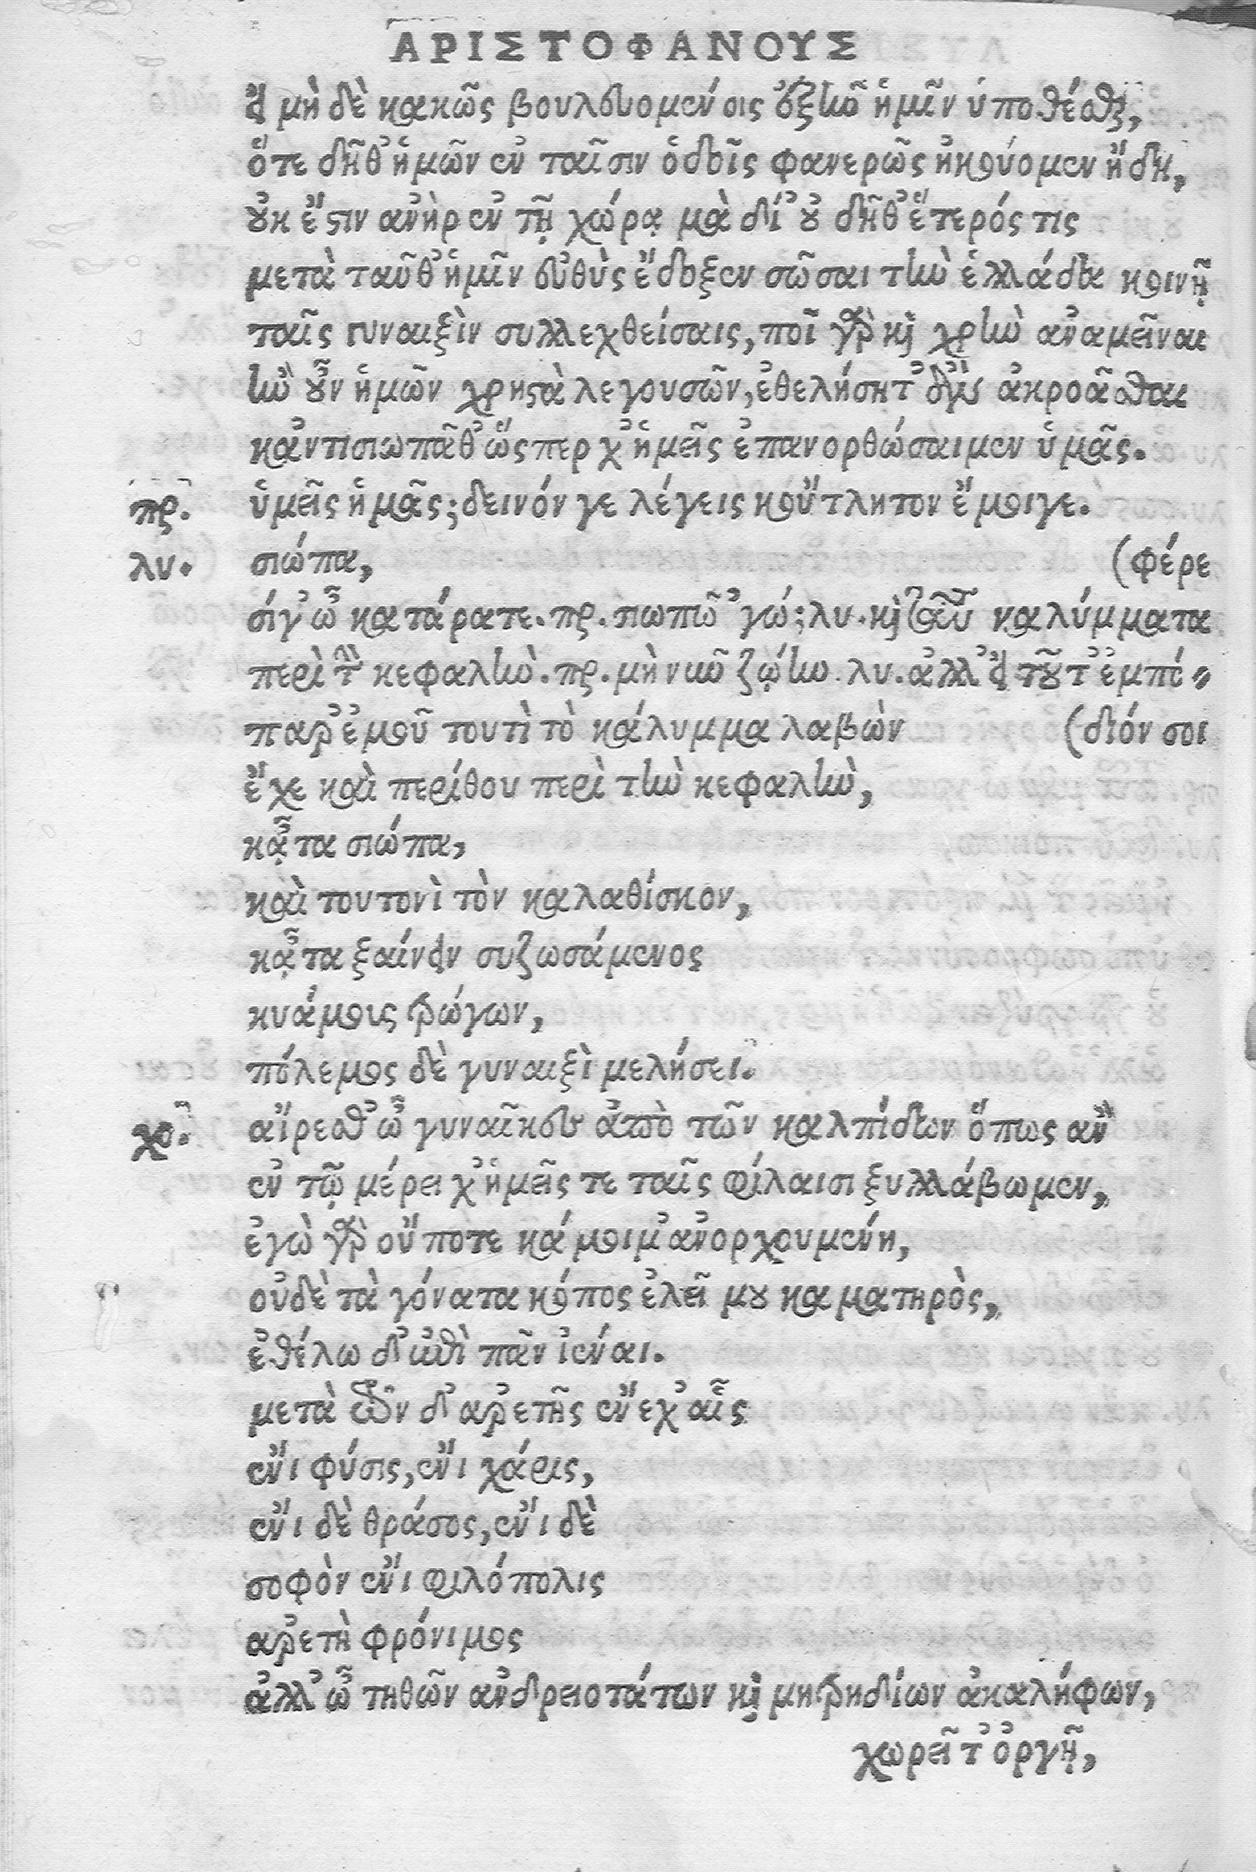 ΑΡΙΣΤΟΦΑΝΟΥΣ
εἰ μὴ δὲ κακῶς βουλευομένοις ἐξῆν ἡμῖν ὑποθέσθαι,
ὅτε δῆθ᾽ ἡμῶν ἐν ταῖσιν ὁδοῖς φανερῶς ἠκούομεν ἤδη,
οὐκ ἔστιν ἀνὴρ ἐν τῇ χώρᾳ μὰ δί᾽ οὐ δῆθ᾽ ἕτερός τις
μετὰ ταῦθ᾽ ἡμῖν εὐθὺς ἔδοξεν σῶσαι τὴν ἑλλάδα κοινῇ
ταῖς γυναιξὶν συλλεχθείσαις, ποῖ γὰρ καὶ χρῆν ἀναμεῖναι
ἢν οὖν ἡμῶν χρηστὰ λεγουσῶν, ἐθελήσητ᾽ εὖ γ᾽ ἀκροᾶσθαι
κἀντισιωπᾶθ᾽ ὥσπερ χ᾽ ἡμεῖς ἐπανορθώσαιμεν ὑμᾶς.
πρ. ὑμεῖς ἡμᾶς; δεινόν γε λέγεις κοὔτλητον ἔμοιγε.
λυ. σιώπα, (φέρε
σίγ᾽ ὦ κατάρατε. πρ. σιωπῶ ᾽γώ; λυ. καὶ ταῦτα καλύμματα
περὶ τὴν κεφαλήν. πρ. μὴ νῦν ζῴην. λυ. ἀλλ᾽ εἰ τοῦτ᾽ ἐμπό⸗
παρ᾽ ἐμοῦ τουτὶ τὸ κάλυμμα λαβὼν (διόν σοι
ἔχε καὶ περίθου περὶ τὴν κεφαλὴν,
κᾆτα σιώπα,
καὶ τουτονὶ τὸν καλαθίσκον,
κᾆτα ξαίνειν συζωσάμενος
κυάμοις τρώγων,
πόλεμος δὲ γυναιξὶ μελήσει.
χο. αἴρεσθ᾽ ὦ γυναῖκες ἀπὸ τῶν καλπίδων ὅπως ἂν
ἐν τῷ μέρει χ᾽ ἡμεῖς τε ταῖς φίλαισι ξυλλάβωμεν,
ἐγὼ γὰρ οὔποτε κάμοιμ᾽ ἀνορχουμένη,
οὐδὲ τὰ γόνατα κόπος ἑλεῖ μου καματηρὸς,
ἐθέλω δ᾽ ἐπὶ πᾶν ἰέναι.
μετὰ τῶν δ᾽ ἀρετῆς ἕνεχ᾽ αἷς
ἔνι φύσις, ἔνι χάρις,
ἔνι δὲ θράσος, ἔνι δὲ
σοφὸν ἔνι φιλόπολις
ἀρετὴ φρόνιμος
ἀλλ᾽ ὦ τηθῶν ἀνδρειοτάτων καὶ μητριδίων ἀκαλήφων,
χωρεῖτ᾽ ὀργῇ,